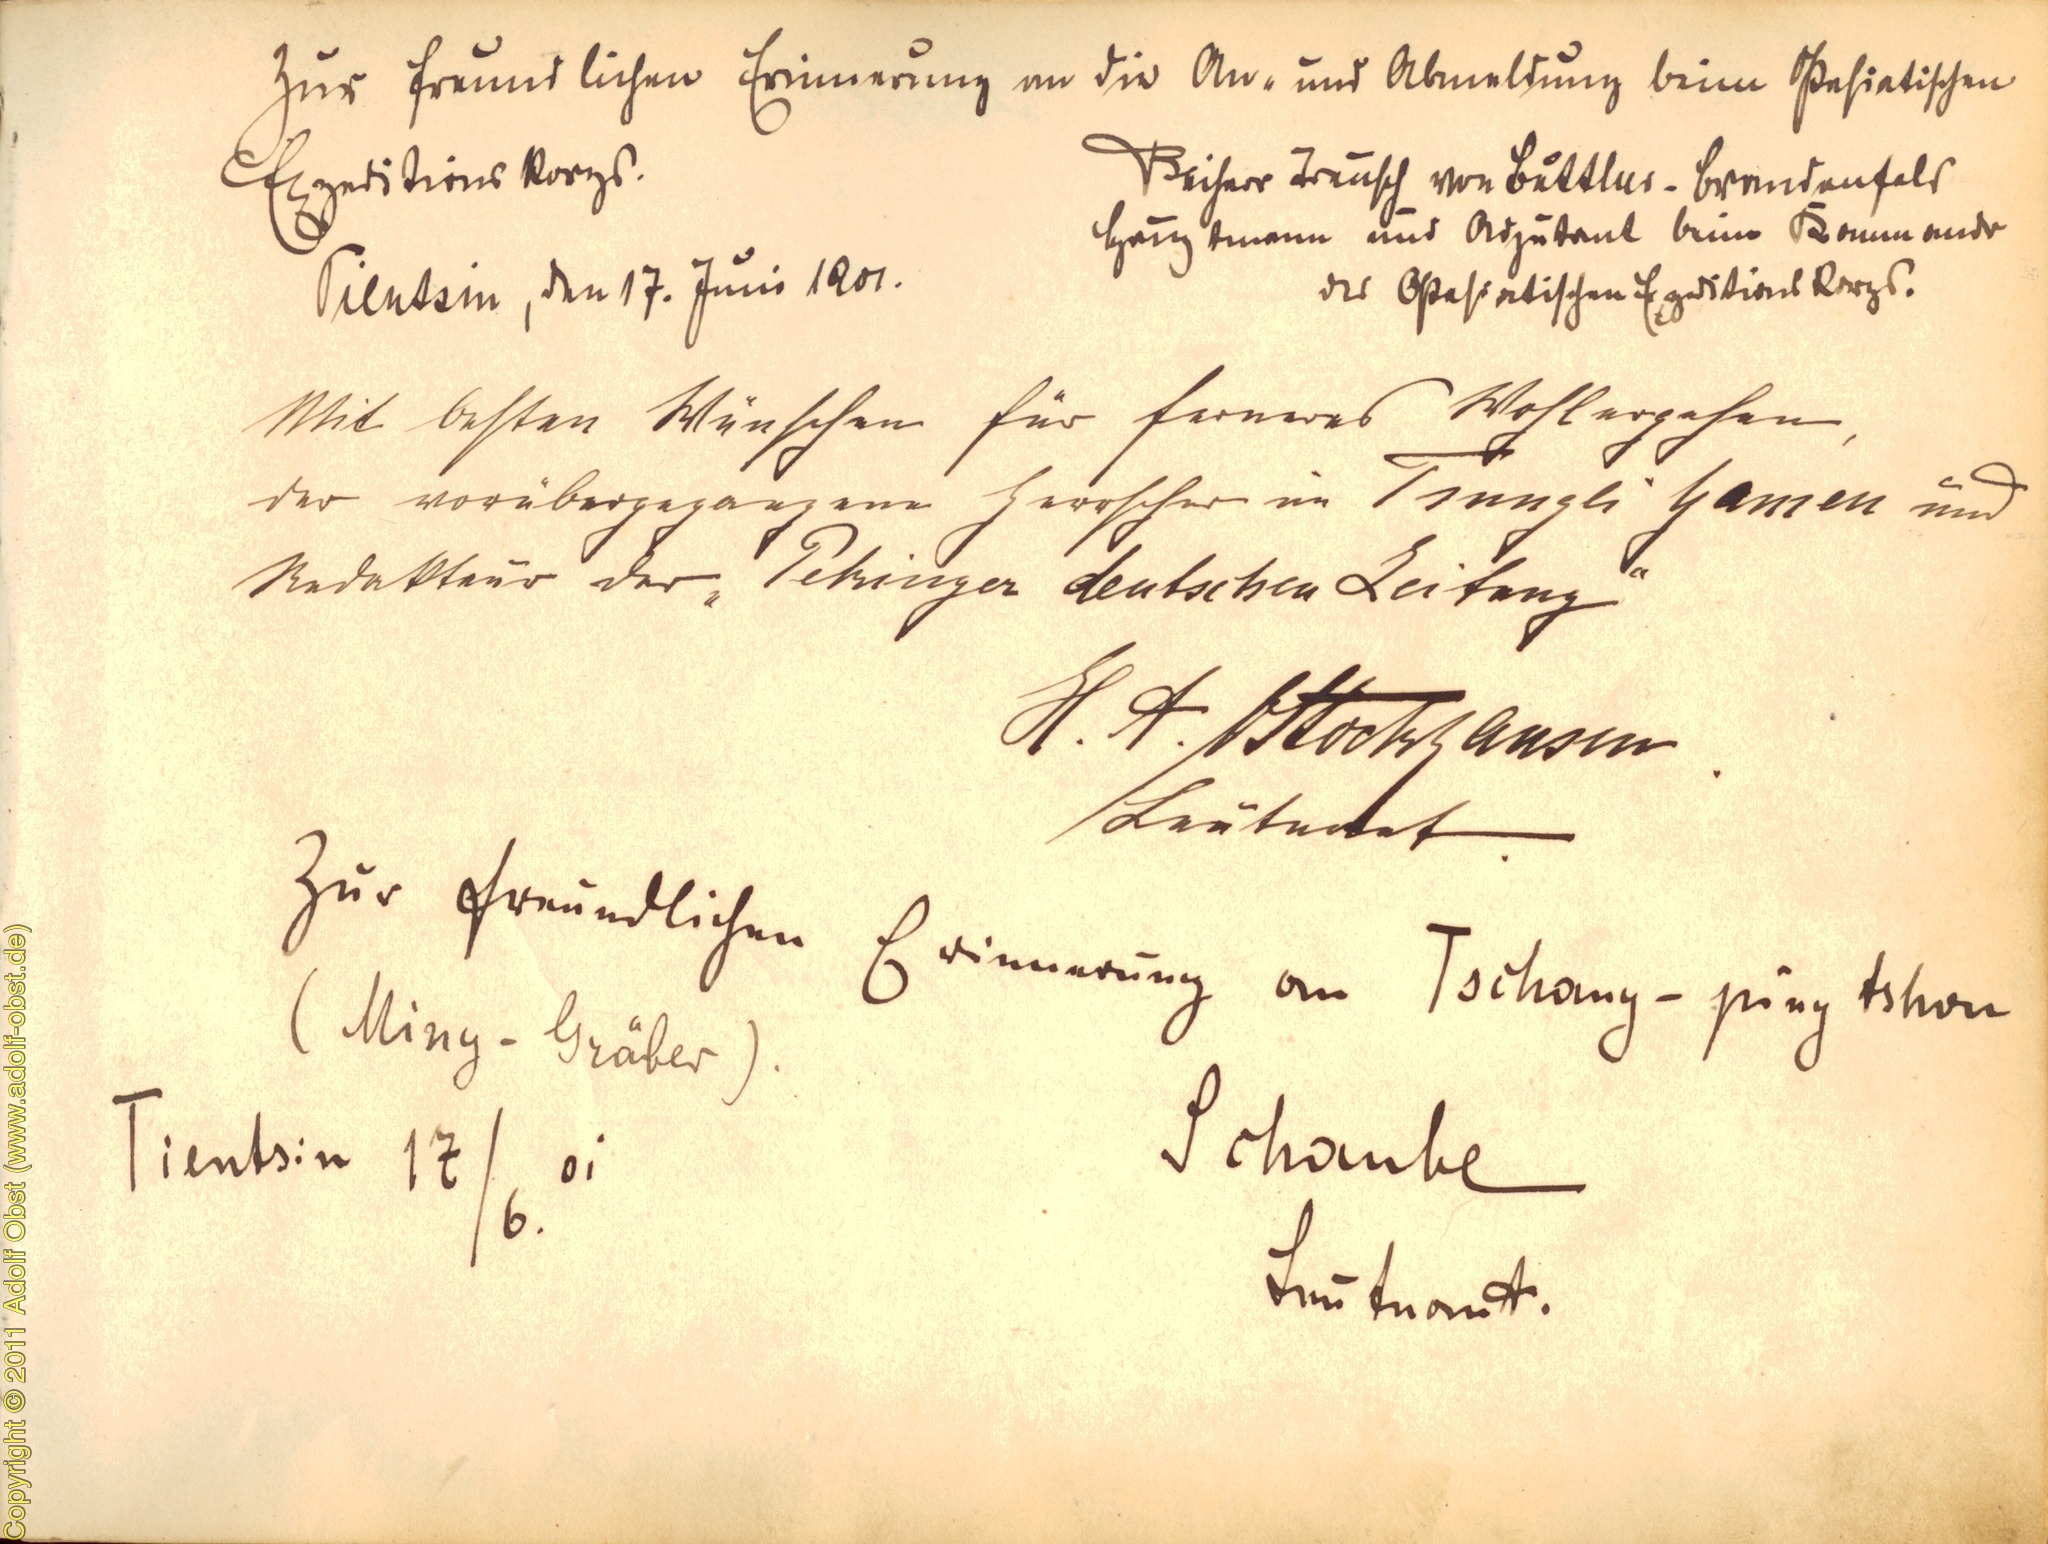 Zur freundlichen Erinnerung an die An- und Abmeldung beim Ostasiatischen
Expeditionskorps.
Freiherr Treusch von Buttlar-Brandenfels
Hauptmann und Adjutant beim Kommando
des Ostasiatischen Expeditionskorps.
Tientsin, den 17. Juni 1901.
Mit besten Wünschen für ferneres Wohlergehen,
der vorübergegangene Herrscher im Tsungli Yamen und
Redakteur der „Pekinger deutschen Zeitung“
H. A. v Stockhausen
Leutenant.
Zur freundlichen Erinnerung an Tschang-ping tshou
(Ming-Gräber).
Tientsin 17/6. 01
Schaube
Leutnant.
Copyright © 2011 Adolf Obst (www.adolf-obst.de)